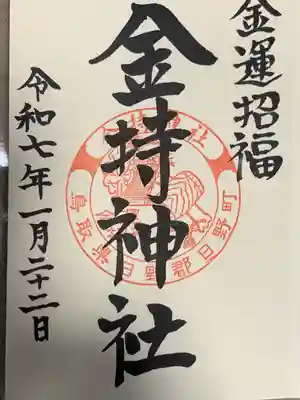 金運招福
金持神社
令和七年一月二十二日
金持神社
鳥取県日野郡日野町